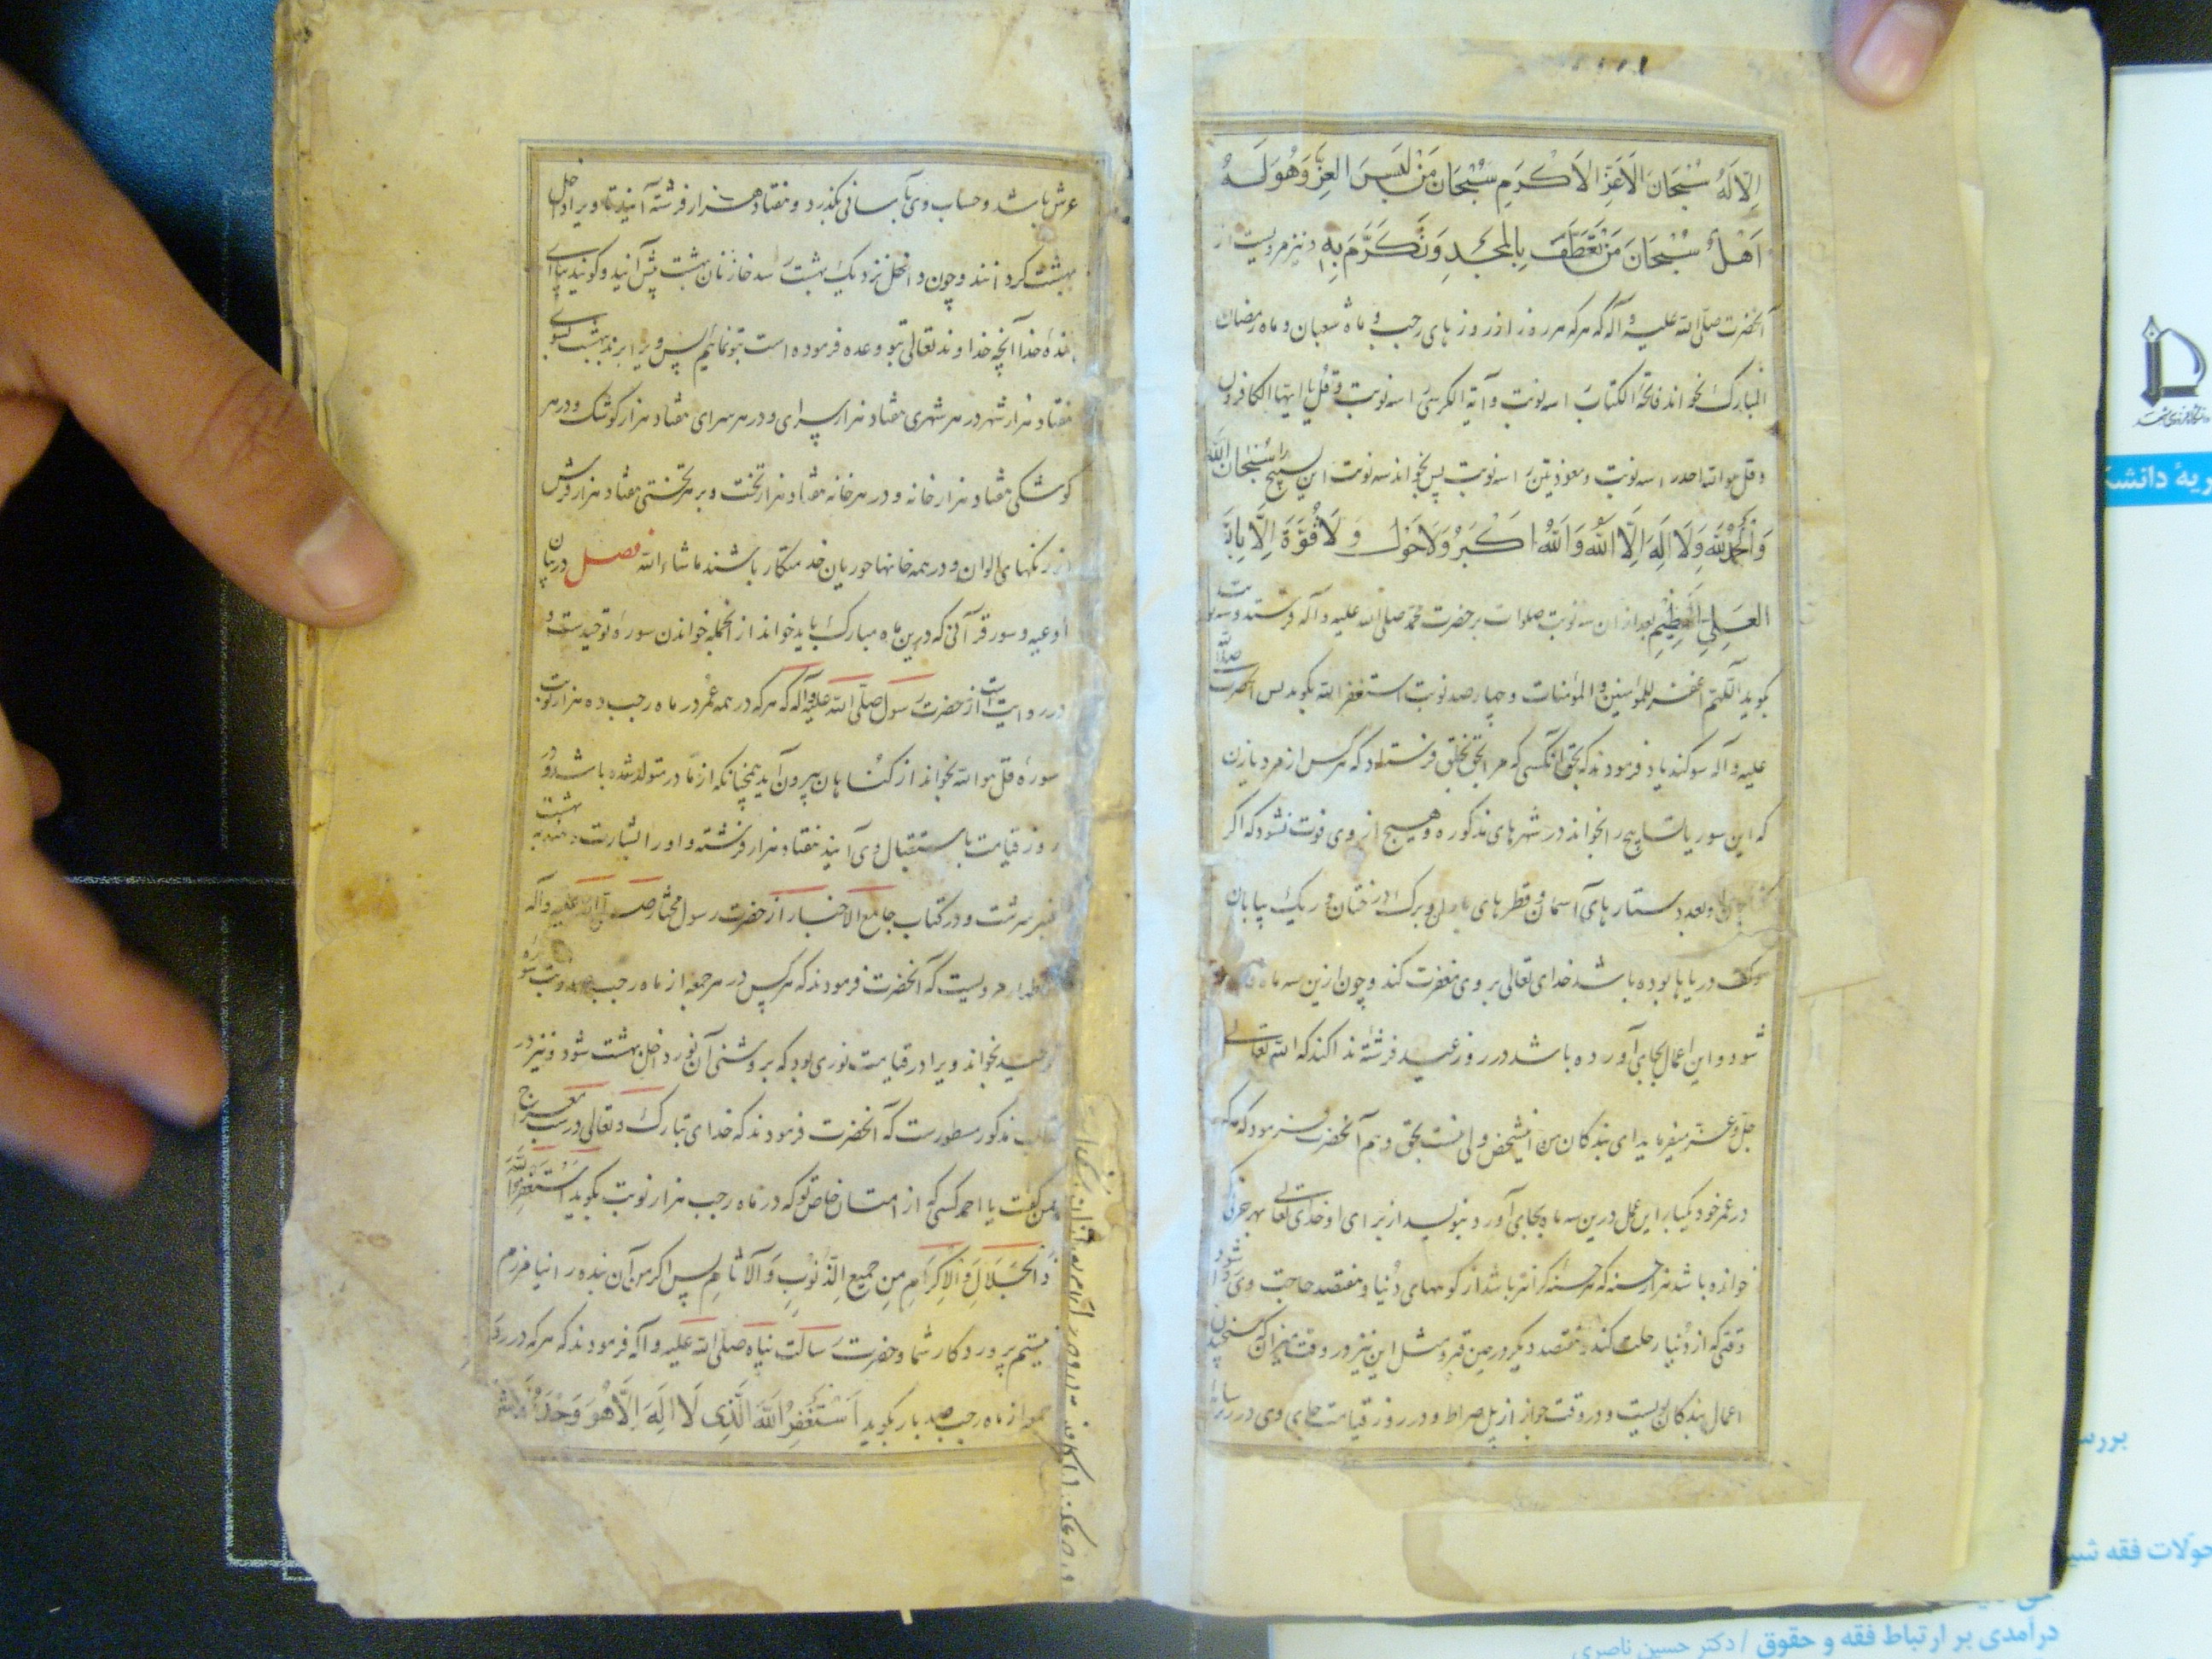 اِلّا لَهُ سُبْحَانَ الاَعَزِّ الاَكْرَمِ سُبْحَانَ مَنْ لَبِسَ العِزَّ وَهُوَ لَهُ
اَهْلٌ سُبْحَانَ مَنْ تَعَطَّفَ بِالمَجْدِ وَتَكَرَّمَ بِهِ و نیز مرویست از
آنحضرت صلّی الله علیه و آله که هر که هر روز از روزهای رجب و ماه شعبان و ماه رمضان
المبارک بخواند فاتحة الکتاب سه نوبت و آیة الکرسی سه نوبت و قل یا ایها الکافرون
و قل هو الله احد سه نوبت و معوذتین سه نوبت پس بخواند سه نوبت این تسبیح را سُبْحَانَ اللّهِ
وَالْحَمْدُ لِلّهِ وَلَا اِلَهَ اِلَّا اللّهُ وَاللّهُ اَكْبَرُ وَلَا حَوْلَ وَلَا قُوَّةَ اِلَّا بِاللّهِ
العَلِیِّ العَظِیْمِ بعد از آن سه نوبت صلوات بر حضرت محمّد صلی الله علیه و آله فرستد و سه نوبت
بگوید اللّهم اغفر للمؤمنین والمؤمنات و چهارصد نوبت استغفر الله بگوید پس آنحضرت صلی الله
علیه و آله سوگند یاد فرمودند که بحق آنکسی که مرا بحق بخلق فرستاد که هر کس از مرد یا زن
که این سور یا تسابیح را بخواند در شهرهای مذکوره و هیچ از وی فوت نشود که اگر
و بعدد ستارهای آسمان و قطرهای باران و برک درختان و ریک بیابان
و کف دریاها بوده باشد خدای تعالی بر وی مغفرت کند و چون ازین سه ماه
شود و این اعمال بجای آورده باشد در روز عید فرشتهٔ ندا کند که الله تعالی
جلّ و عزّ میفرماید ای بندگان من این شخص ولی منست بحق و هم آنحضرت فرمود که هر که
در عمر خود یکبار این عمل درین سه ماه بجای آورد بنویسد از برای او خدای تعالی بهر حرفی
خوانده باشد هزار حسنه که هر حسنه گرانتر باشد از کوههای دنیا و هفتصد حاجت وی روا شود
وقتی که از دنیا رحلت کند و هفتصد دیگر در حین قبر و مثل این نیز در وقت میزان که سنجیدن
اعمال بندگانست و در وقت جواز از پل صراط و در روز قیامت جای وی در زیر سایهٔ
عرش باشد و حساب وی بآسانی بگذرد و هفتاد هزار فرشته آیند تا ویرا داخل
بهشت گردانند و چون داخل نزدیک بهشت رسد خازنان بهشت پیش آیند و گویند بیا ای
بندهٔ خدا آنچه خداوند تعالی بتو وعده فرموده است بتو نمائیم پس ویرا برند ببهشت بسوی
هفتاد هزار شهر در هر شهری هفتاد هزار سرای و در هر سرای هفتاد هزار کوشک و در هر
کوشکی هفتاد هزار خانه و در هر خانه هفتاد هزار تخت و بر هر تختی هفتاد هزار فرش
از رنگهای الوان و در همه خانها حوریان خدمتکار باشند ما شاء الله فصل در بیان
ادعیه و سور قرآنی که درین ماه مبارک باید خواند از آنجمله خواندن سوره توحیدست و
در روایت است از حضرت رسول صلی الله علیه و آله که هر که در همه عمر در ماه رجب ده هزار نوبت
سورهٔ قل هو الله بخواند از گناهان بیرون آید همچنانکه از مادر متولد شده باشد و در
روز قیامت باستقبال وی آیند هفتاد هزار فرشته و او را بشارت دهند به بهشت
عنبر سرشت و در کتاب جامع الاخبار از حضرت رسول مختار صلی الله علیه و آله
مرویست که آنحضرت فرمودند که هر کس در هر جمعه از ماه رجب صد نوبت سوره
توحید بخواند ویرا در قیامت نوری بود که بروشنی آن نور داخل بهشت شود و نیز در
کتاب مذکور مسطورست که آنحضرت فرمودند که خدای تبارک و تعالی در شب معراج
بمن گفت یا احمد کسی که از امتان خاص تو که در ماه رجب هزار نوبت بگوید اَسْتَغْفِرُ اللّهَ
ذَا الْجَلَالِ وَالْاِكْرَامِ مِنْ جَمِیعِ الذُّنُوبِ وَالْآثَامِ پس اگر من آن بنده را نیامرزم
نیستم پروردگار شما و حضرت رسالت پناه صلی الله علیه و آله فرمودند که هر که در روز
جمعه از ماه رجب صد بار بگوید اَسْتَغْفِرُ اللّهَ الَّذِی لَا اِلَهَ اِلَّا هُوَ وَحْدَهُ
ریهٔ دانشک
بررس
حولات فقه شی
درآمدی بر ارتباط فقه و حقوق / دکتر حسین ناصری